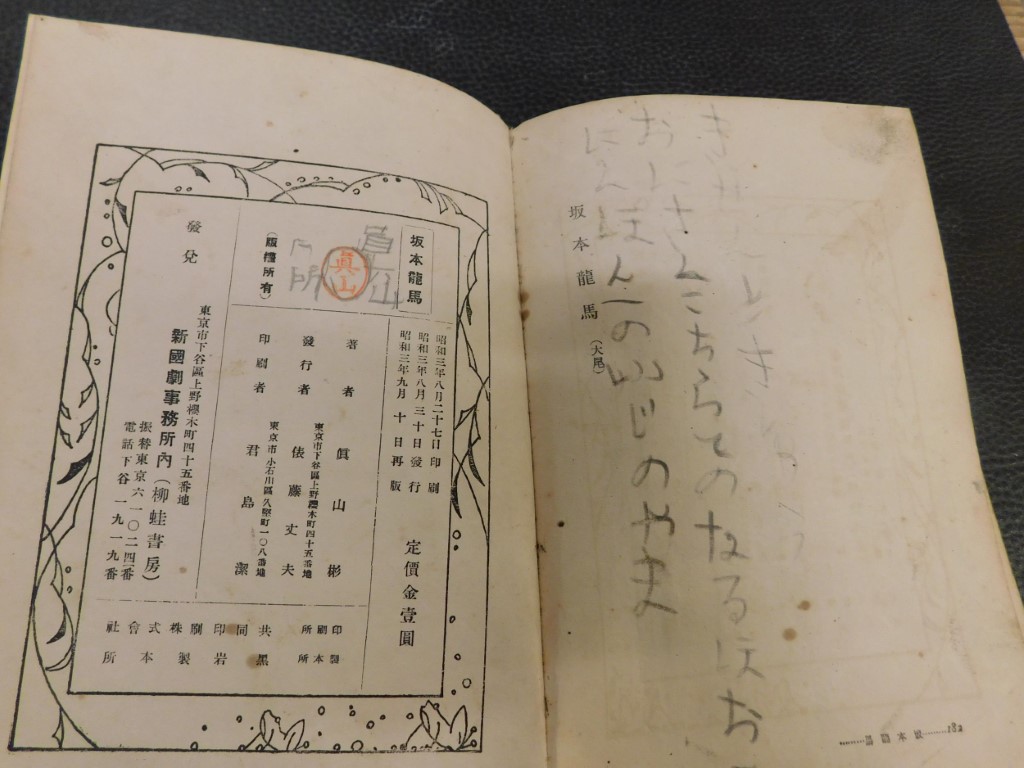 おにさんこちらてのなるほお
にんほん一のふじのやま
坂本龍馬（大尾）
坂本龍馬………182
昭和三年八月二十七日印刷
昭和三年八月三十日發行
昭和三年九月十日再版
定價金壹圓
坂本龍馬
眞山
（版權所有）
著者 眞山彬
東京市下谷區上野櫻木町四十五番地
發行者 俵藤丈夫
東京市小石川區久堅町一〇八番地
印刷者 君島潔
印刷所 共同印刷株式會社
製本所 黑岩製本所
發兌
東京市下谷區上野櫻木町四十五番地
新國劇事務所內（柳蛙書房）
振替東京六一〇二四番
電話下谷一九一九番